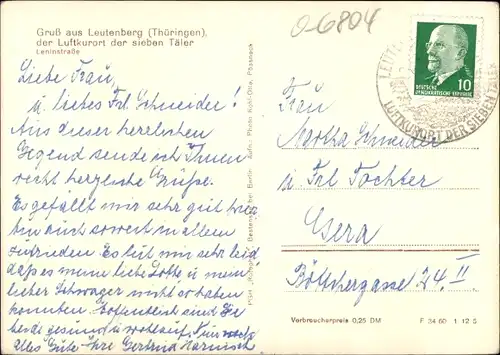 Gruß aus Leutenberg (Thüringen),
der Luftkurort der sieben Täler
Leninstraße
0-6804
Liebe Frau,
u. liebes Frl Schneider!
Aus dieser herrlichen
Gegend sende ich Ihnen
recht herzliche Grüße.
Es gefällt mir sehr gut hier
bin auch soweit in allem
zufrieden Es tut mir sehr leid
daß es meine liebe Lotte u mein
lieber Schwager nicht so haben
konnten Hoffentlich sind Sie
beide gesund u wohlauf. Nun noch
alles Gute Ihre Gertrud Harnisch
Bestensee bei Berlin Aufn.: Photo Kohl-Otte, Pössneck
10
DEUTSCHE
DEMOKRATISCHE REPUBLIK
LUFTKURORT DER SIEBEN TÄLER
Frau
Martha Schneider
u Frl Tochter
Gera
Böttchergasse 24. II
Verbraucherpreis 0,25 DM F 34 60 1 12 5